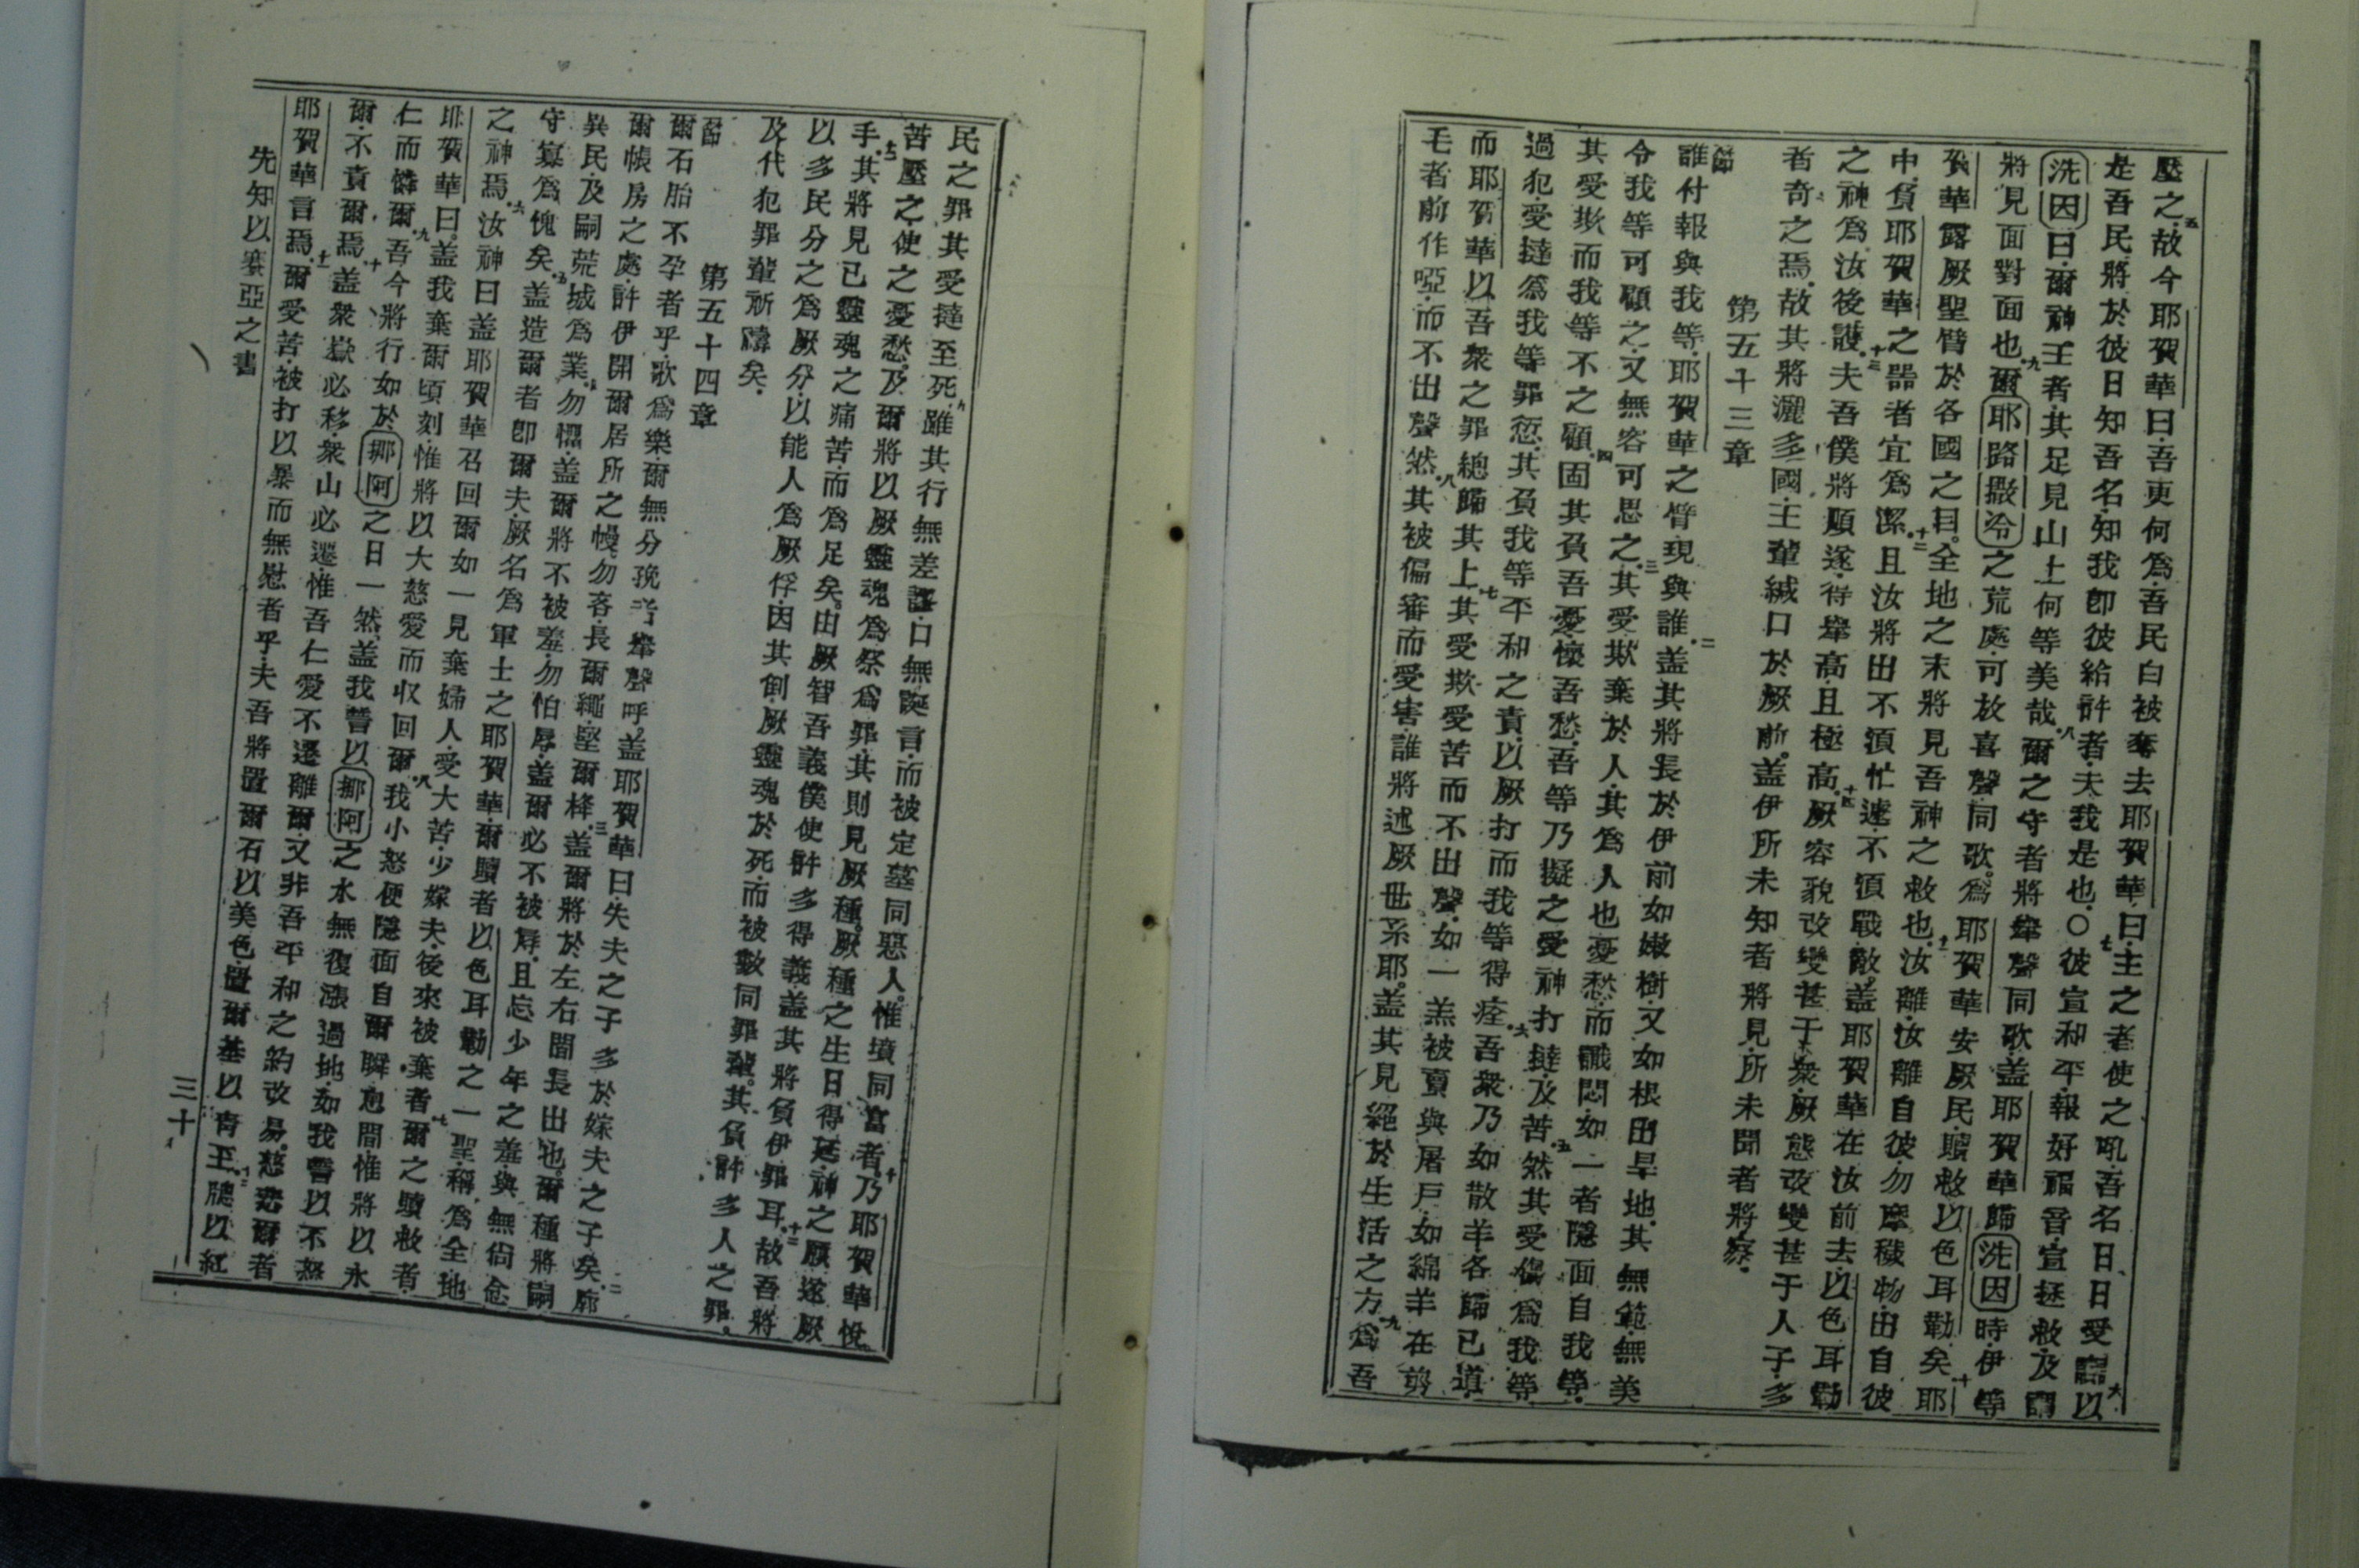 壓之五故今耶賀華曰吾更何為吾民白被奪去耶賀華曰主之者使之吼吾名日日受謗六以
是吾民將於彼日知吾名知我即彼給許者夫我是也七〇彼宣和平報好福音宣拯救及謂
洗因曰爾神王者其足見山上何等美哉八爾之守者將舉聲同歌盖耶賀華歸洗因時伊等
將見面對面也九爾耶路撒冷之荒處可放喜聲同歌為耶賀華安厥民贖救以色耳勒矣十耶
賀華露厥聖臂於各國之目全地之末將見吾神之救也十一汝離汝離自彼勿摩穢物由自彼
中負耶賀華之器者宜為潔十二且汝將出不須忙遽不須戰敵盖耶賀華在汝前去以色耳勒
之神為汝後護十三夫吾僕將順遂得舉高且極高十四厥容貌改變甚于衆厥態改變甚于人子多
者奇之焉故其將灑多國主輩緘口於厥前盖伊所未知者將見所未聞者將察
第五十三章
節
誰付報與我等耶賀華之臂現與誰二盖其將長於伊前如嫩樹又如根由旱地其無範無美
令我等可顧之又無容可思之三其受欺棄於人其為人也憂愁而識悶如一者隱面自我等
其受欺而我等不之顧四固其負吾憂懷吾愁吾等乃擬之受神打撻及苦五然其受傷為我等
過犯受撻為我等罪愆其負我等平和之責以厥打而我等得痊六吾衆乃如散羊各歸已道
而耶賀華以吾衆之罪總歸其上七其受欺受苦而不出聲如一羔被賣與屠戶如綿羊在剪
毛者前作啞而不出聲然八其被偏審而受害誰將述厥世系耶盖其見絕於生活之方九為吾
民之罪其受撻至死九雖其行無差謬口無誕言而被定墓同惡人惟墳同富者十乃耶賀華悅
苦壓之使之憂愁及爾將以厥靈魂為祭為罪其則見厥種厥種之生日得延神之願遂厥
手十一其將見已靈魂之痛苦而為足矣由厥智吾義僕使許多得義盖其將負伊罪耳十二故吾將
以多民分之為厥分以能人為厥俘因其倒厥靈魂於死而被數同罪輩其負許多人之罪
及代犯罪輩祈禱矣
第五十四章
節
爾石胎不孕者乎歌為樂爾無分挽者舉聲呼盖耶賀華曰失夫之子多於嫁夫之子矣二廓
爾帳房之處許伊開爾居所之幔勿吝長爾繩堅爾樁三盖爾將於左右間長出也爾種將嗣
異民及嗣荒城為業四勿懼盖爾將不被羞勿怕辱盖爾必不被辱且忘少年之羞與無尙念
守寡為愧矣五盖造爾者即爾夫厥名為軍士之耶賀華爾贖者以色耳勒之一聖稱為全地
之神焉六汝神曰盖耶賀華召回爾如一見棄婦人受大苦少嫁夫後來被棄者七爾之贖救者
耶賀華曰盖我棄爾頃刻惟將以大慈愛而收回爾八我小怒便隱面自爾瞬息間惟將以永
仁而憐爾九吾今將行如於挪阿之日一然盖我誓以挪阿之水無復漲過地如我誓以不怒
爾不責爾焉十盖衆嶽必移衆山必遷惟吾仁愛不遷離爾又非吾平和之約改易慈悲爾者
耶賀華言焉十一爾受苦被打以暴而無慰者乎夫吾將置爾石以美色置爾基以靑玉十二牕以紅
先知以賽亞之書
三十